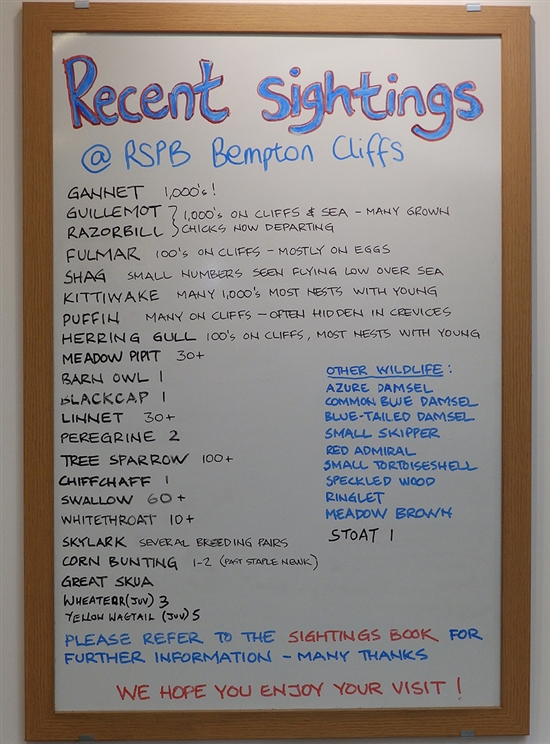 Recent Sightings
@ RSPB Bempton Cliffs
GANNET 1,000's!
GUILLEMOT } 1,000's ON CLIFFS & SEA - MANY GROWN
RAZORBILL } CHICKS NOW DEPARTING
FULMAR 100's ON CLIFFS - MOSTLY ON EGGS
SHAG SMALL NUMBERS SEEN FLYING LOW OVER SEA
KITTIWAKE MANY 1,000's MOST NESTS WITH YOUNG
PUFFIN MANY ON CLIFFS - OFTEN HIDDEN IN CREVICES
HERRING GULL 100's ON CLIFFS, MOST NESTS WITH YOUNG
MEADOW PIPIT 30+
BARN OWL 1
BLACKCAP 1
LINNET 30+
PEREGRINE 2
TREE SPARROW 100+
CHIFFCHAFF 1
SWALLOW 60+
WHITETHROAT 10+
SKYLARK SEVERAL BREEDING PAIRS
CORN BUNTING 1-2 (PAST STAPLE NEWK)
GREAT SKUA
WHEATEAR (JUV) 3
YELLOW WAGTAIL (JUV) 5
OTHER WILDLIFE:
AZURE DAMSEL
COMMON BLUE DAMSEL
BLUE-TAILED DAMSEL
SMALL SKIPPER
RED ADMIRAL
SMALL TORTOISESHELL
SPECKLED WOOD
RINGLET
MEADOW BROWN
STOAT 1
PLEASE REFER TO THE SIGHTINGS BOOK FOR
FURTHER INFORMATION - MANY THANKS
WE HOPE YOU ENJOY YOUR VISIT!